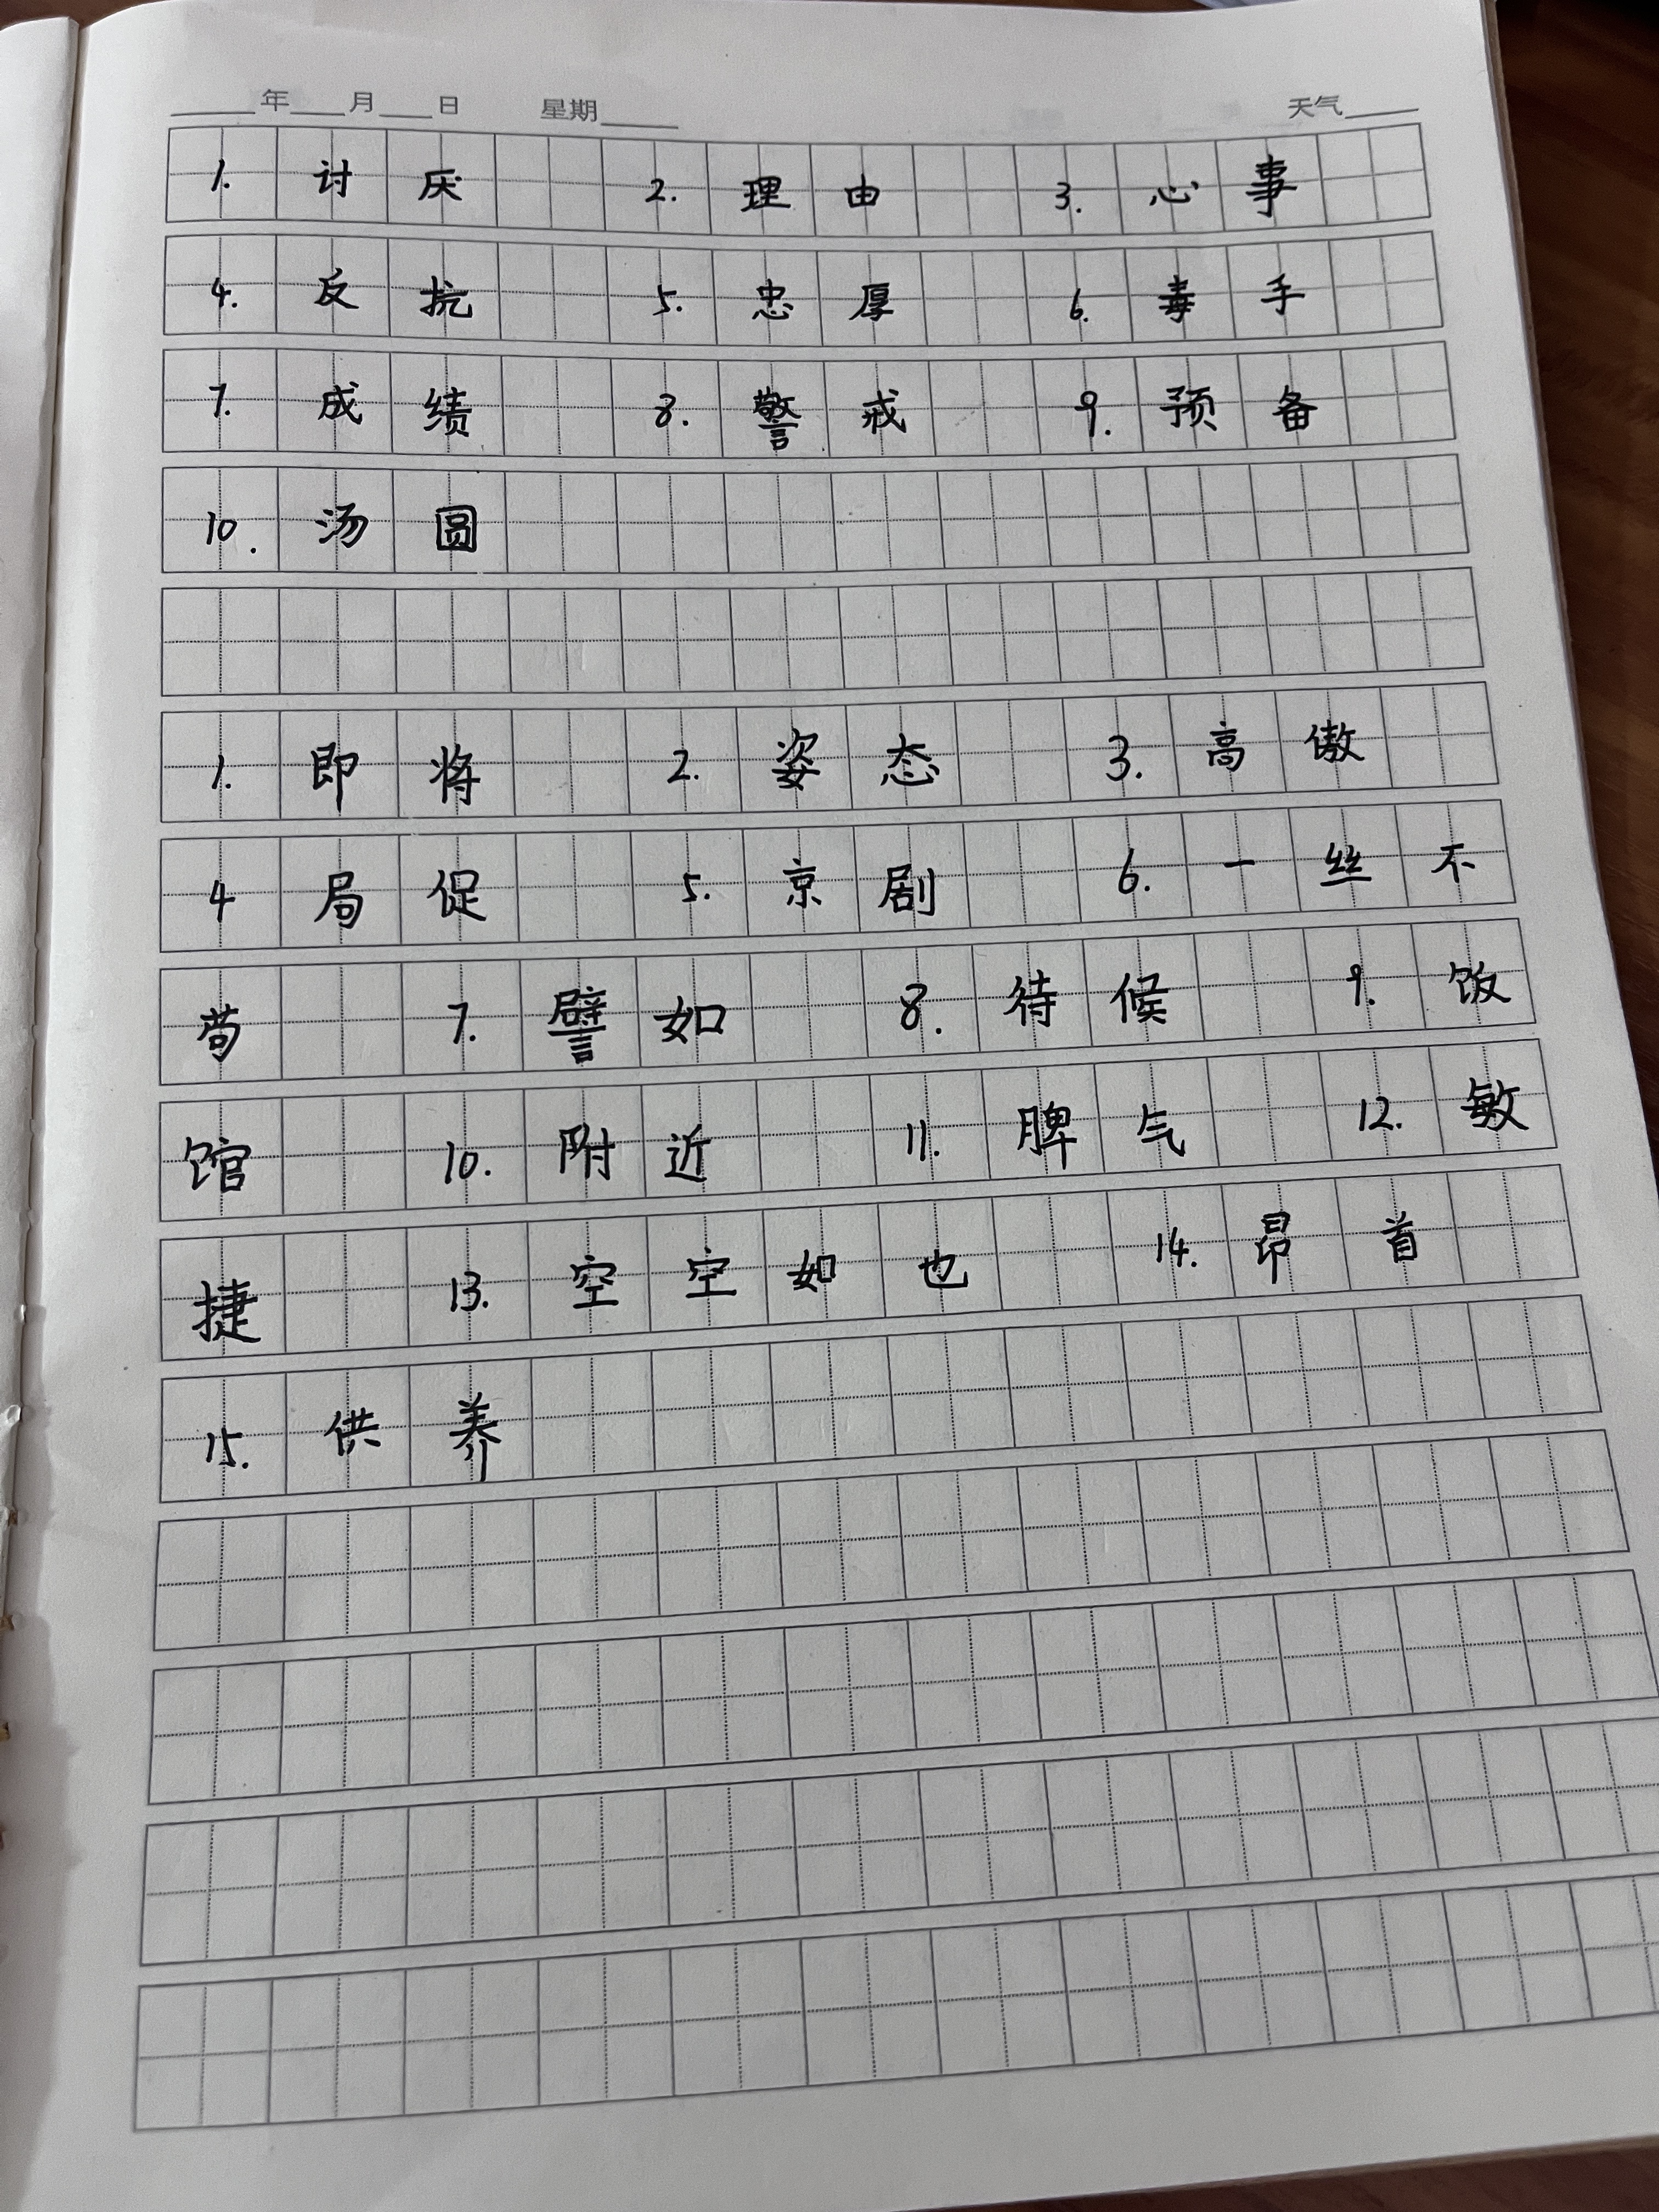 年 月 日 星期 天气
1. 讨厌 2. 理由 3. 心事
4. 反抗 5. 忠厚 6. 毒手
7. 成绩 8. 警戒 9. 预备
10. 汤圆
1. 即将 2. 姿态 3. 高傲
4 局促 5. 京剧 6. 一丝不
苟 7. 譬如 8. 待候 9. 饭
馆 10. 附近 11. 脾气 12. 敏
捷 13. 空空如也 14. 昂首
15. 供养